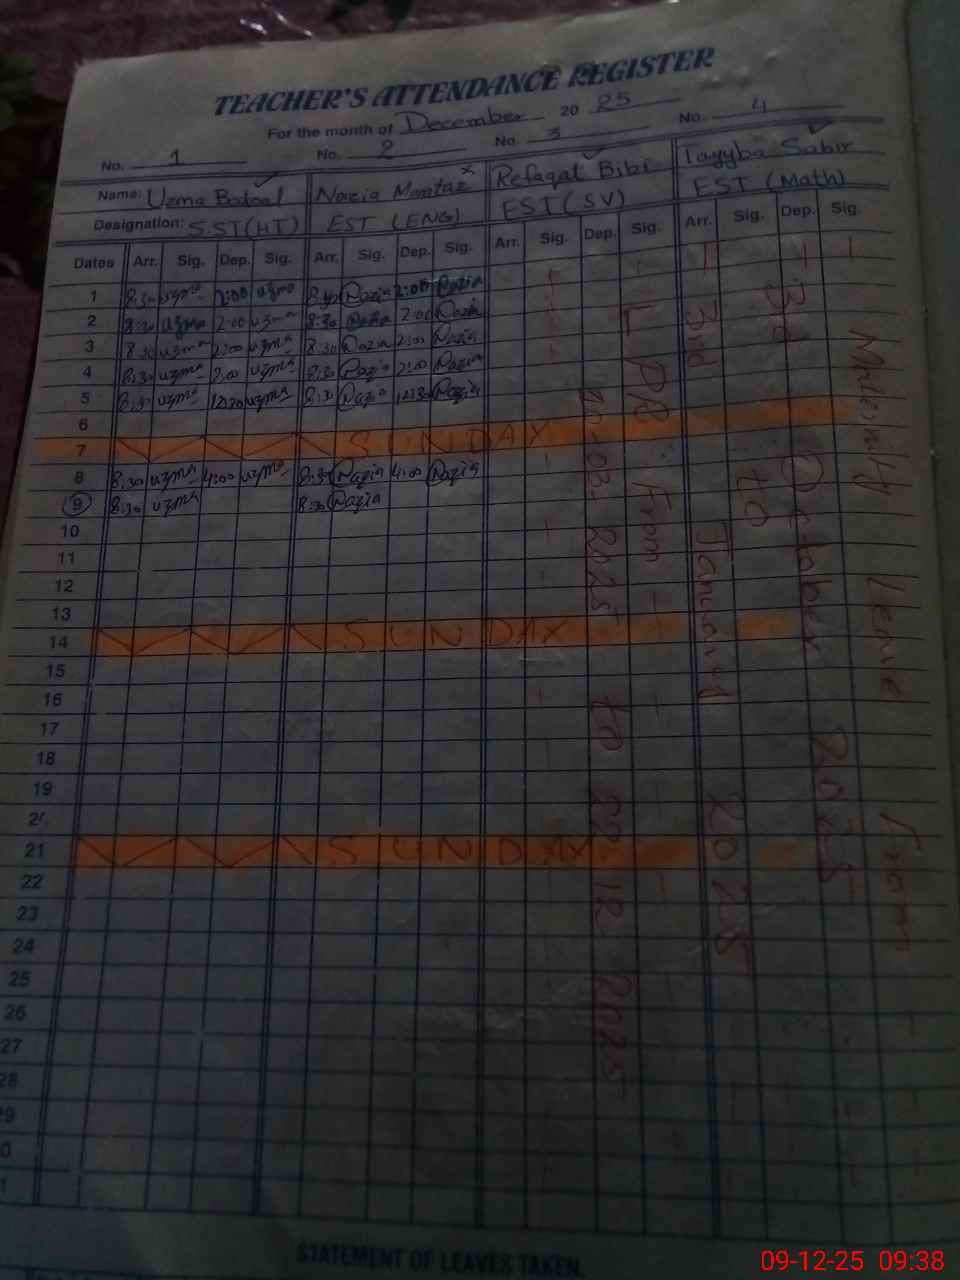 TEACHER'S ATTENDANCE REGISTER
For the month of December 2025
No. 1 No. 2 No. 3 No. 4
Name: Uzma Batool Nazia Mumtaz Refaqat Bibi Tayyba Sabir
Designation: S.ST(HT) EST (ENG) EST (SV) EST (Math)
Dates Arr. Sig. Dep. Sig. Arr. Sig. Dep. Sig. Arr. Sig. Dep. Sig. Arr. Sig. Dep. Sig.
1 8:30 uzma 2:00 uzma 8:30 Nazia 2:00 Nazia
2 8:30 uzma 2:00 uzma 8:30 Nazia 2:00 Nazia
3 8:30 uzma 2:00 uzma 8:30 Nazia 2:00 Nazia
4 8:30 uzma 2:00 uzma 8:30 Nazia 2:00 Nazia
5 8:30 uzma 12:30 uzma 8:30 Nazia 12:30 Nazia
6
7 SUNDAY
8 8:30 uzma 4:00 uzma 8:30 Nazia 4:00 Nazia
9 8:30 uzma 8:30 Nazia
10
11
12
13
14 SUNDAY
15
16
17
18
19
20
21 SUNDAY
22
23
24
25
26
27
28
29
0
1
LPR From
20-03-2025 to 22-12-2025
Maternity Leave From
3rd October 2025
to
3rd January 2025
STATEMENT OF LEAVES TAKEN.
09-12-25 09:38